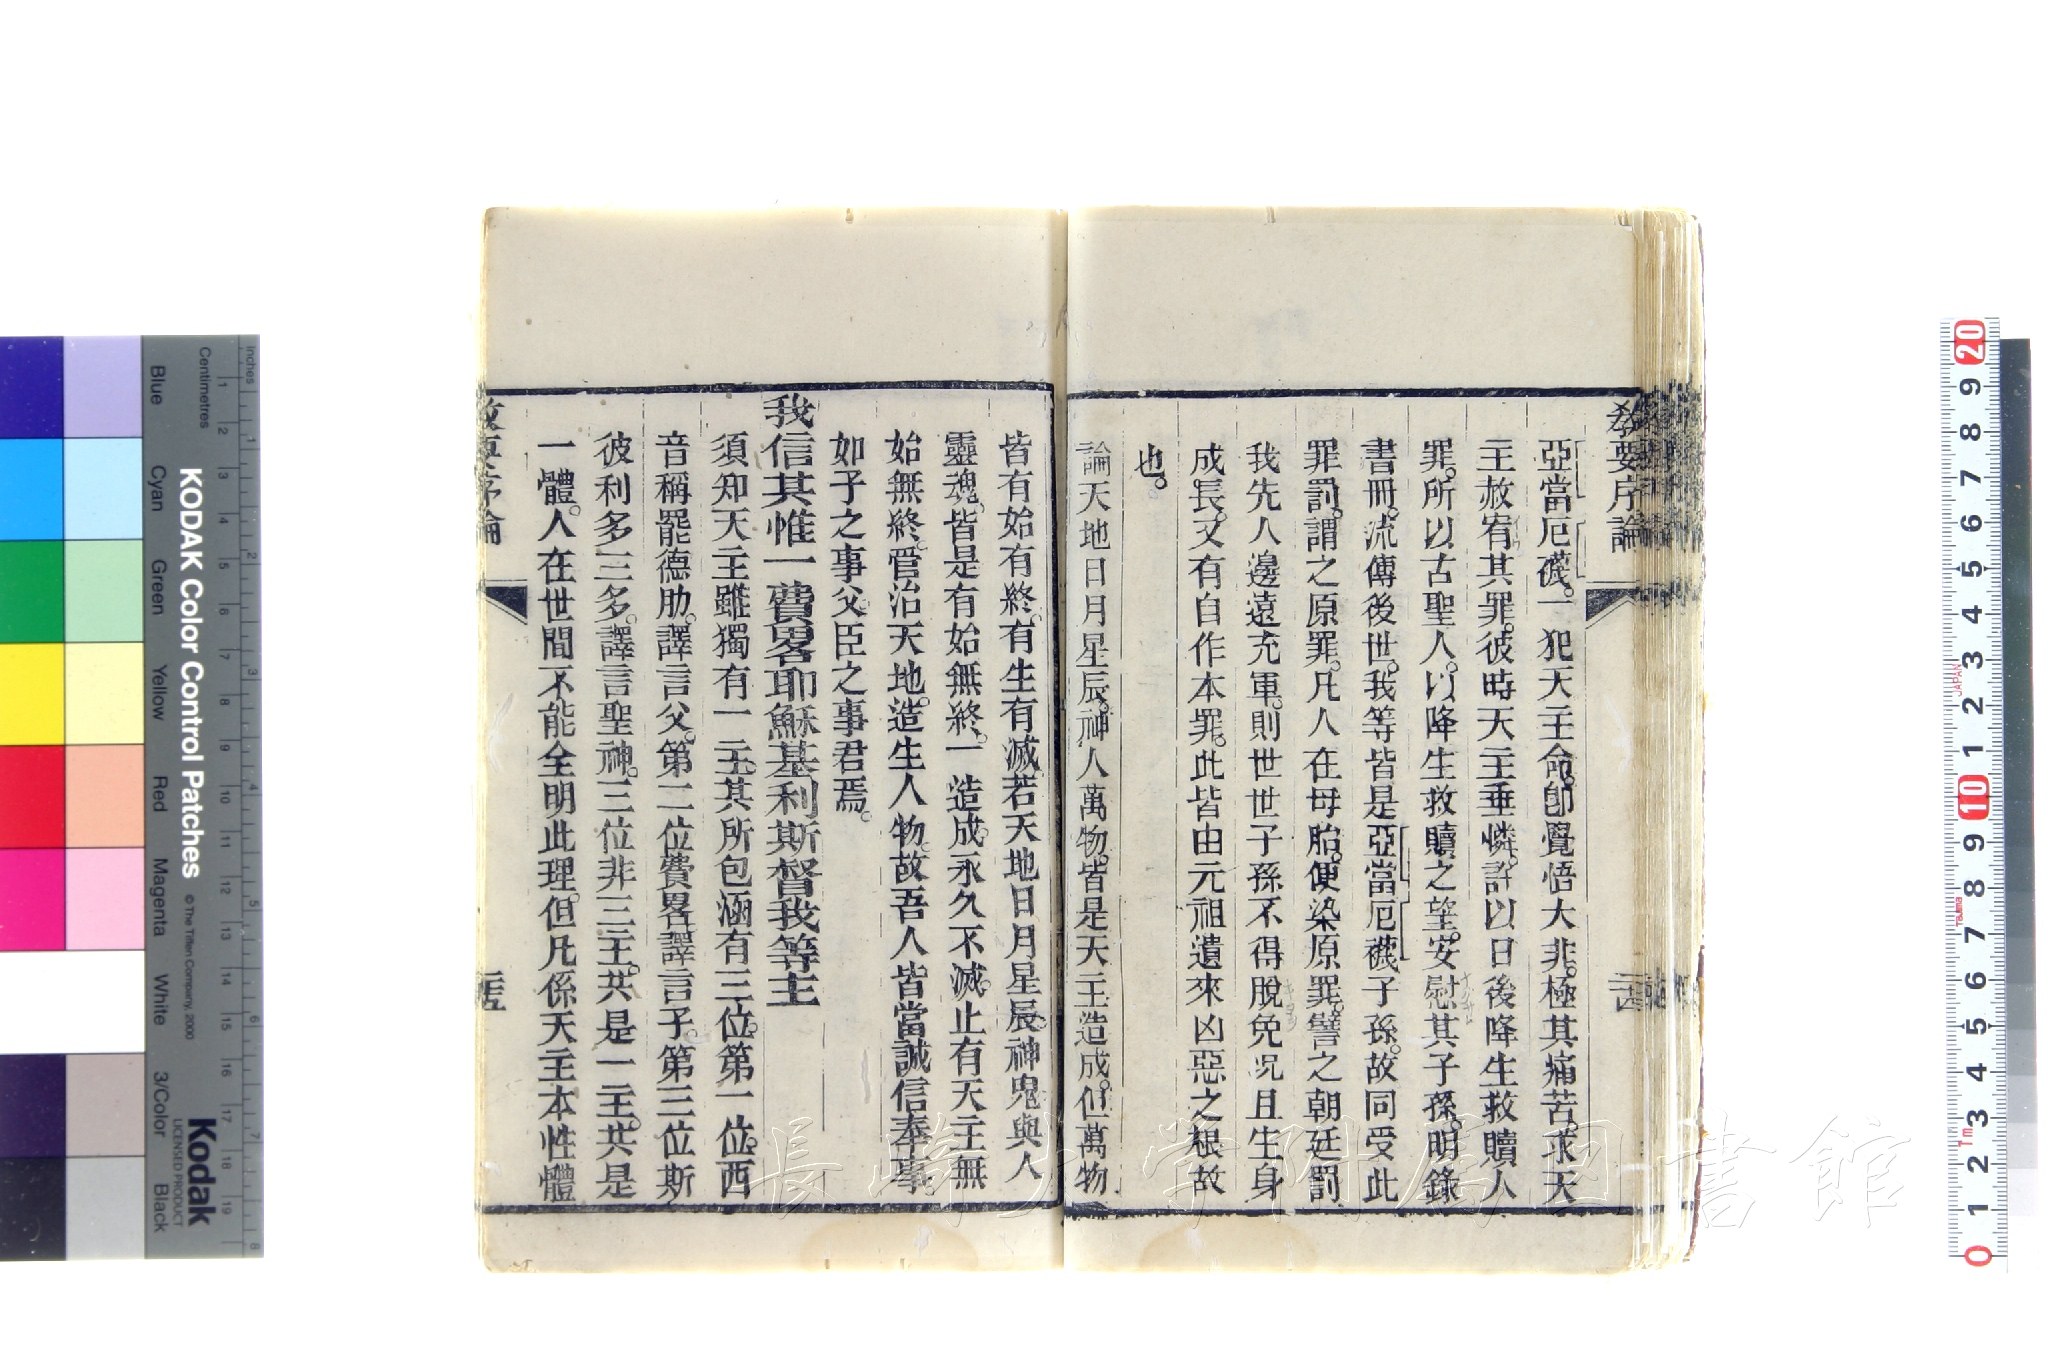 教要序論
亞當厄襪。一犯天主命。卽覺悟大非。極其痛苦。求天
主赦宥其罪。彼時天主垂憐。許以日後降生救贖人
罪。所以古聖人。以降生救贖之望。安慰其子孫。明錄
書冊。流傳後世。我等皆是亞當厄襪子孫。故同受此
罪罰。謂之原罪。凡人在母胎。便染原罪。譬之朝廷罰
我先人邊遠充軍。則世世子孫不得脫免。况且生身
成長。又有自作本罪。此皆由元祖遺來凶惡之根故
也。
論天地日月星辰。神人萬物。皆是天主造成。但萬物
皆有始有終。有生有滅。若天地日月星辰。神鬼與人
靈魂。皆是有始無終。一造成。永久不滅。止有天主無
始無終。管治天地。造生人物。故吾人皆當誠信奉事
如子之事父。臣之事君焉。
我信其惟一費畧耶穌基利斯督我等主
須知天主雖獨有一主。其所包涵有三位。第一位。西
音稱罷德肋。譯言父。第二位費畧。譯言子。第三位斯
彼利多三多。譯言聖神。三位非三主。共是一主。共是
一體。人在世間不能全明此理。但凡係天主本性體
教要序論
長崎大学附属図書館
KODAK Color Control Patches
© The Tiffen Company, 2000
Kodak
LICENSED PRODUCT
Inches
Centimetres
Blue
Cyan
Green
Yellow
Red
Magenta
White
3/Color
Black
1 2 3 4 5 6 7 8 9 10 11 12 13 14 15 16 17 18 19
1 2 3 4 5 6 7 8
20 9 8 7 6 5 4 3 2 1 10 9 8 7 6 5 4 3 2 1 0
JAPAN